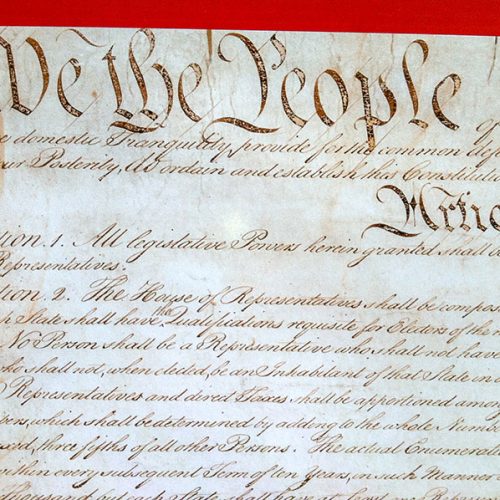 We the People of
domestic Tranquility, provide for the common
Posterity, do ordain and establish this
Artic
tion. 1. All legislative Powers herein granted shall be
Representatives.
tion. 2. The House of Representatives shall be compos
State shall have the Qualifications requisite for Electors of the
No Person shall be a Representative who shall not have
who shall not, when elected, be an Inhabitant of that State in
Representatives and direct Taxes shall be apportioned amon
bers, which shall be determined by adding to the whole Numbe
three fifths of all other Persons. The actual Enumera
within every subsequent Term of ten Years, in such Manner
thousand, but each State shall have at Least one